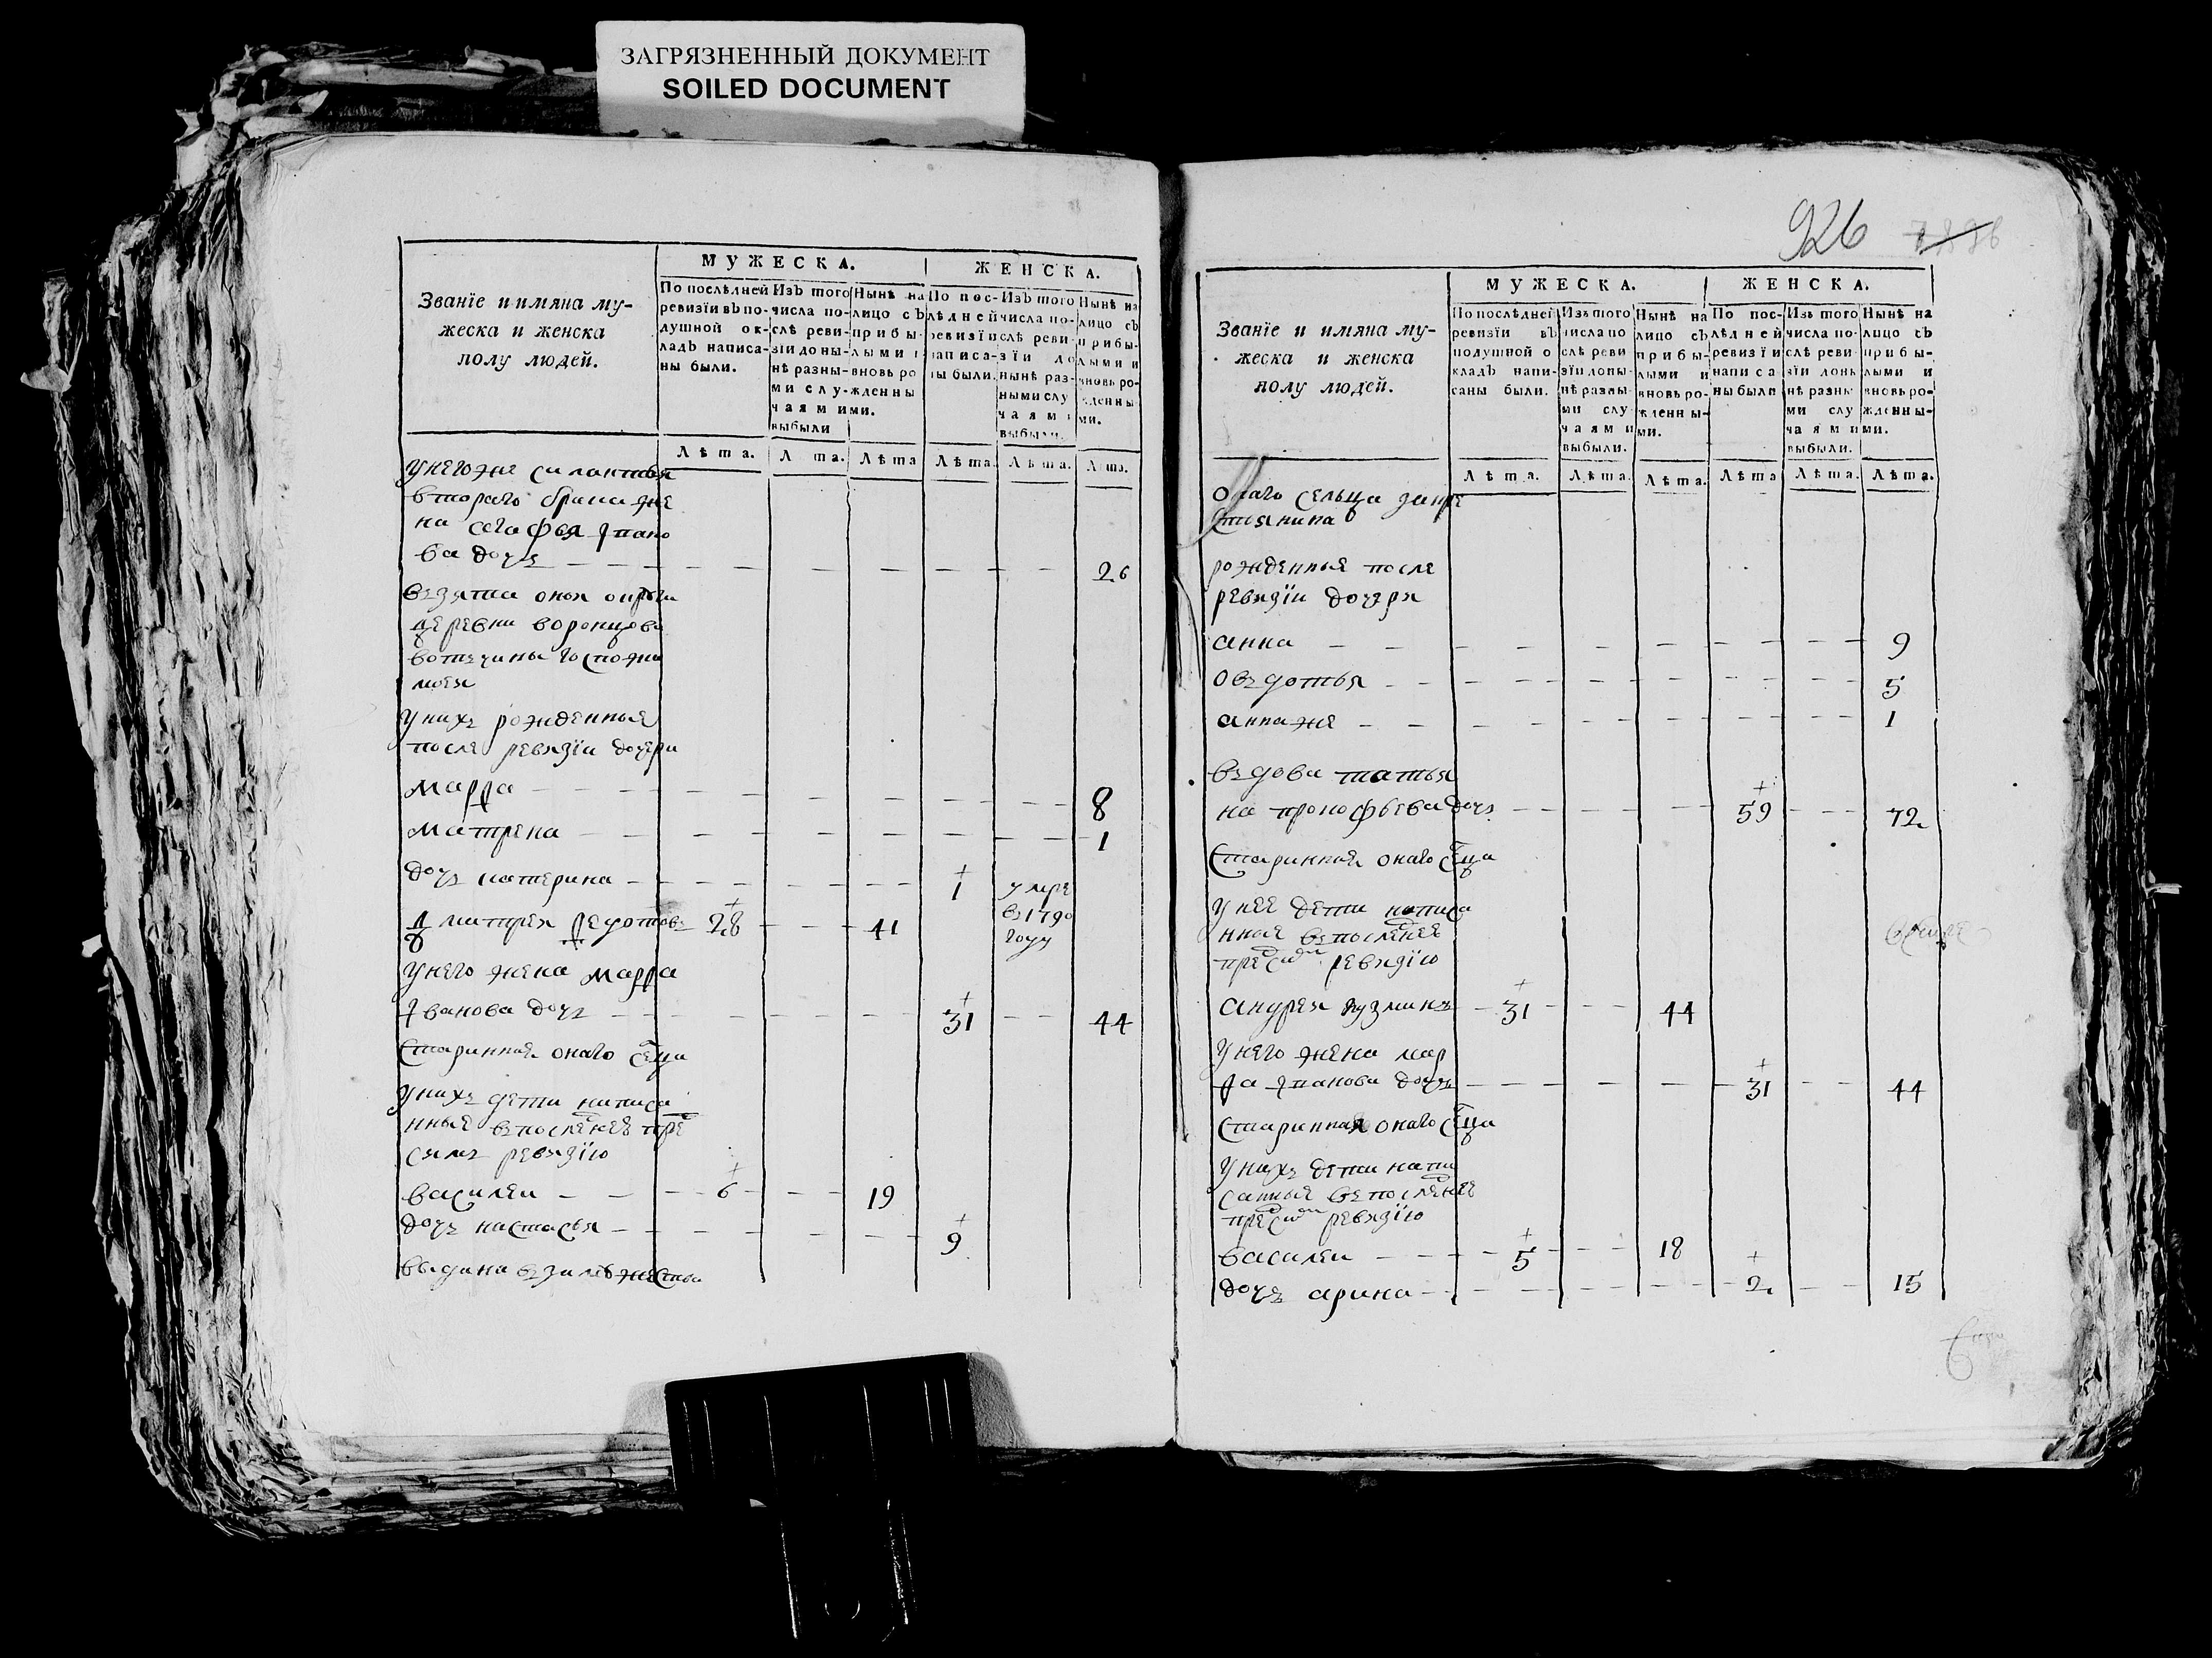 ЗАГРЯЗНЕННЫЙ ДОКУМЕНТ
SOILED DOCUMENT
Званїе и имяна му-
жеска и женска
полу людей.
МУЖЕСКА.
ЖЕНСКА.
По послѣдней
ревизїи въ по-
душной ок-
ладъ написа-
ны были.
Изъ того
числа по-
слѣ реви-
зїи доны-
нѣ разны-
ми слу-
чаями
выбыли
Нынѣ на
лицо съ
прибы-
лыми и
вновь ро
жденны
ми.
По пос-
лѣдней
ревизїи
написа-
ны были.
Изъ того
числа по-
слѣ реви-
зїи до
нынѣ раз-
ными слу
чаями
выбыли.
Нынѣ на
лицо съ
прибы-
лыми и
вновь ро-
жденны
ми.
Лѣта. Лѣта. Лѣта Лѣта. Лѣта. Лѣта.
у него же силантья
втораго брака же
на
ва дочь 26
взята оная
деревни воронцова
вотчины госпожи
моея
у нихъ рожденные
после ревизїи дочери
марѳа 8
матрена 1
дочь катерина 1 умре
в 1790
году
дмитрей ѳедотовъ 28 41
у него жена марѳа
иванова дочь 31 44
старинная онаго сца
у нихъ дети написа
нные в последнее пред
симъ ревизїю
василеи 6 19
дочь настасья 9
выдана в замужество
926
Званїе и имяна му-
жеска и женска
полу людей.
МУЖЕСКА.
ЖЕНСКА.
По послѣдней
ревизїи въ
подушной о
кладъ напи-
саны были.
Изъ того
числа по
слѣ реви
зїи доны-
нѣ разны
ми слу
чаями
выбыли.
Нынѣ на
лицо съ
прибы-
лыми и
вновь ро-
жденны-
ми.
По пос-
лѣдней
ревизїи
написа
ны были
Изъ того
числа по-
слѣ реви-
зїи доны
нѣ разны
ми слу
чаями
выбыли.
Нынѣ на
лицо съ
прибы-
лыми и
вновь ро-
жденны-
ми.
Лѣта. Лѣта. Лѣта. Лѣта Лѣта. Лѣта.
онаго сельца за кре
стьянина
рожденные после
ревизїи дочери
анна 9
овдотья 5
анна же 1
вдова татья
на прокофьева дочь 59 72
старинная онаго сца
у нее дети написа
нные в последнее
пред сим ревизїю
андрей кузминъ 31 44
у него жена мар
ѳа иванова дочь 31 44
старинная онаго сца
у нихъ дети напи
санные в последнее
пред сим ревизїю
василеи 5 18
дочь арина 2 15